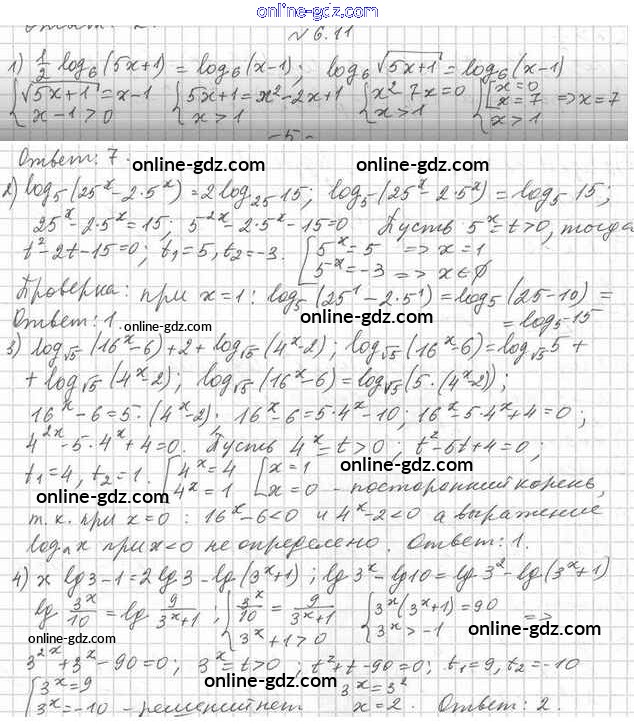 online-gdz.com
№6.11
1) 1/2 log₆(5x+1) = log₆(x-1); log₆√(5x+1) = log₆(x-1)
{√(5x+1) = x-1 {5x+1 = x²-2x+1 {x² 7x=0 {[x=0
x-1>0 x>1 x>1 [x=7 => x=7
x>1
-5-
Ответ: 7.
online-gdz.com online-gdz.com
2) log₅(25ˣ-2·5ˣ) = 2log₂₅15; log₅(25ˣ-2·5ˣ) = log₅15;
25ˣ-2·5ˣ=15; 5⁻²ˣ-2·5ˣ-15=0 Пусть 5ˣ=t>0, тогда
t²-2t-15=0; t₁=5, t₂=-3. [5ˣ=5 => x=1
[5ˣ=-3 => x∈∅
Проверка: при x=1: log₅(25¹-2·5¹) = log₅(25-10) =
Ответ: 1. = log₅15
online-gdz.com online-gdz.com
3) log√5(16ˣ-6)+2+log√5(4ˣ-2); log√5(16ˣ-6) = log√5 5 +
+ log√5(4ˣ-2); log√5(16ˣ-6) = log√5(5·(4ˣ-2));
16ˣ-6=5·(4ˣ-2); 16ˣ-6=5·4ˣ-10; 16ˣ-5·4ˣ+4=0;
4²ˣ-5·4ˣ+4=0. Пусть 4ˣ=t>0; t²-5t+4=0;
t₁=4, t₂=1. [4ˣ=4 [x=1
online-gdz.com
[4ˣ=1 [x=0 - посторонний корень,
online-gdz.com
т.к. при x=0: 16ˣ-6<0 и 4ˣ-2<0 а выражение
logₙx при x<0 не определено. Ответ: 1.
online-gdz.com
4) x lg3-1=2lg3-lg(3ˣ+1); lg3ˣ-lg10=lg3²-lg(3ˣ+1)
lg 3ˣ/10 = lg 9/(3ˣ+1); {3ˣ/10 = 9/(3ˣ+1) {3ˣ(3ˣ+1)=90 =>
3ˣ+1>0 3ˣ>-1
online-gdz.com online-gdz.com
3²ˣ+3ˣ-90=0; 3ˣ=t>0; t²+t-90=0; t₁=9, t₂=-10
[3ˣ=9 3ˣ=3²
online-gdz.com
[3ˣ=-10 - решений нет x=2. Ответ: 2.